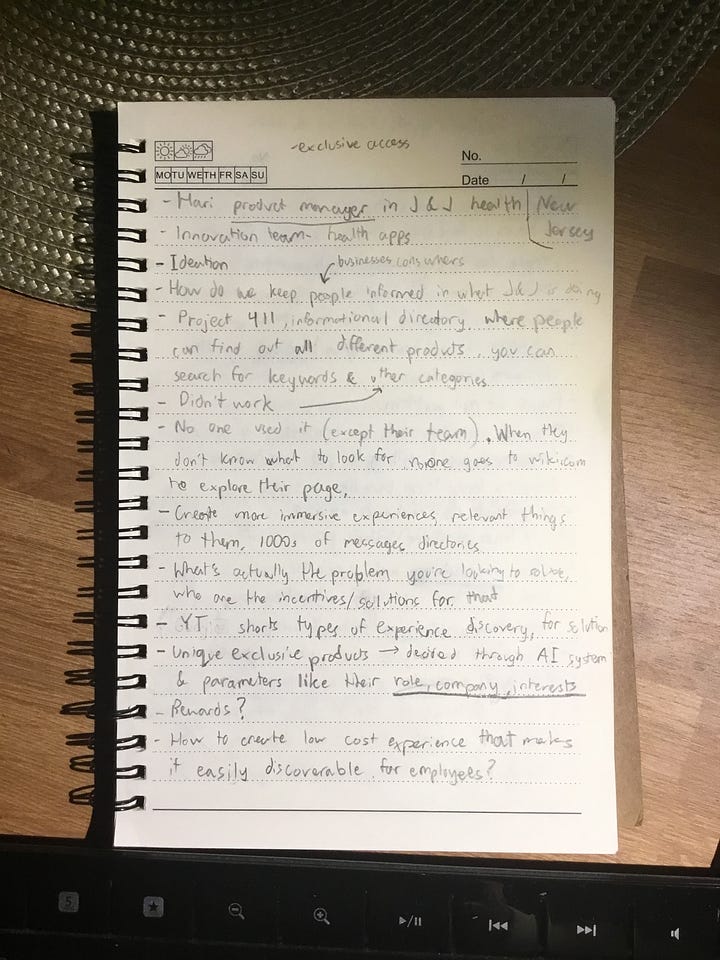 -exclusive access
No.
MO TU WE TH FR SA SU
Date / /
- Hari product manager in J & J health | New
Jersey
- Innovation team- health apps
- Ideation
businesses consumers
- How do we keep people informed in what J&J is doing
- Project 411, informational directory, where people
can find out all different products, you can
search for keywords & other categories
- Didn't work
- No one used it (except their team). When they
don't know what to look for, noone goes to wiki.com
to explore their page.
- Create more immersive experiences, relevant things
to them, 1000s of messages directories
- What's actually the problem you're looking to solve,
who are the incentives/solutions for that
- YT shorts types of experience discovery, for solution
- Unique exclusive products → desired through AI system
& parameters like their role, company, interests
- Rewards?
- How to create low cost experience that makes
it easily discoverable for employees?
5